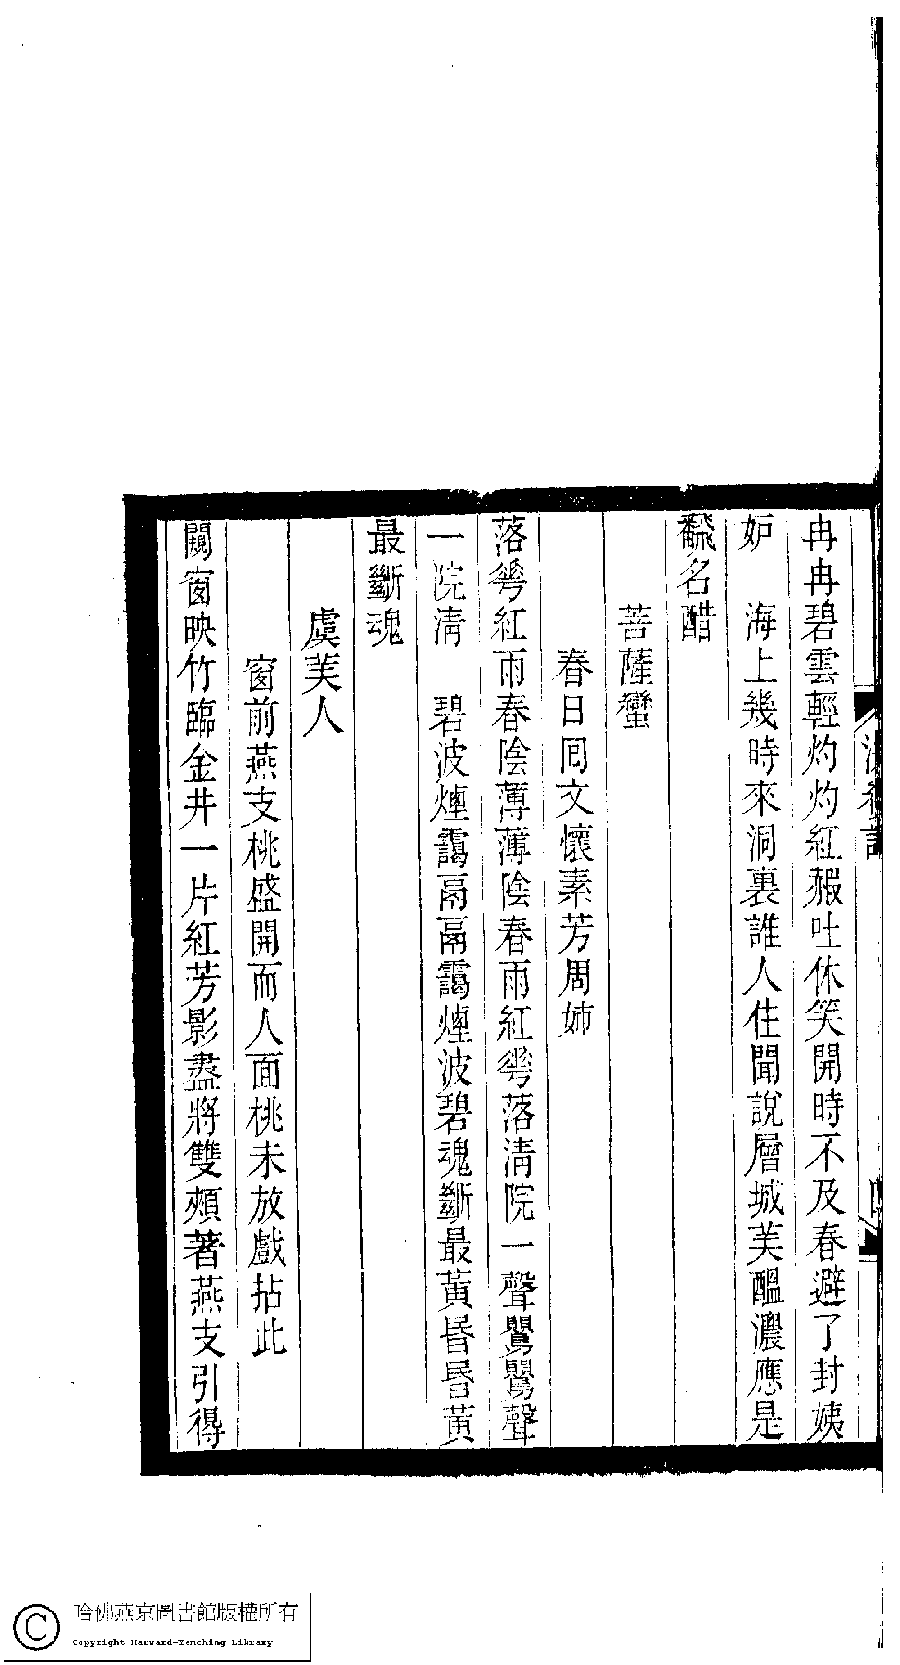 冉冉碧雲輕灼灼紅葩吐休笑開時不及春避了封姨
妒　海上幾時來洞裏誰人住聞說層城芙醞濃應是
飜名醋
菩薩蠻
春日囘文懷素芳周姊
落蕚紅雨春陰薄薄陰春雨紅蕚落清院一聲鸎鸎聲
一院清　碧波煙靄鬲鬲靄煙波碧魂斷最黃昏昏黃
最斷魂
虞芙人
窗前燕支桃盛開而人面桃未放戲拈此
闌窗映竹臨金井一片紅芳影盡將雙頰著燕支引得
哈佛燕京圖書館版權所有
Copyright Harvard-Yenching Library